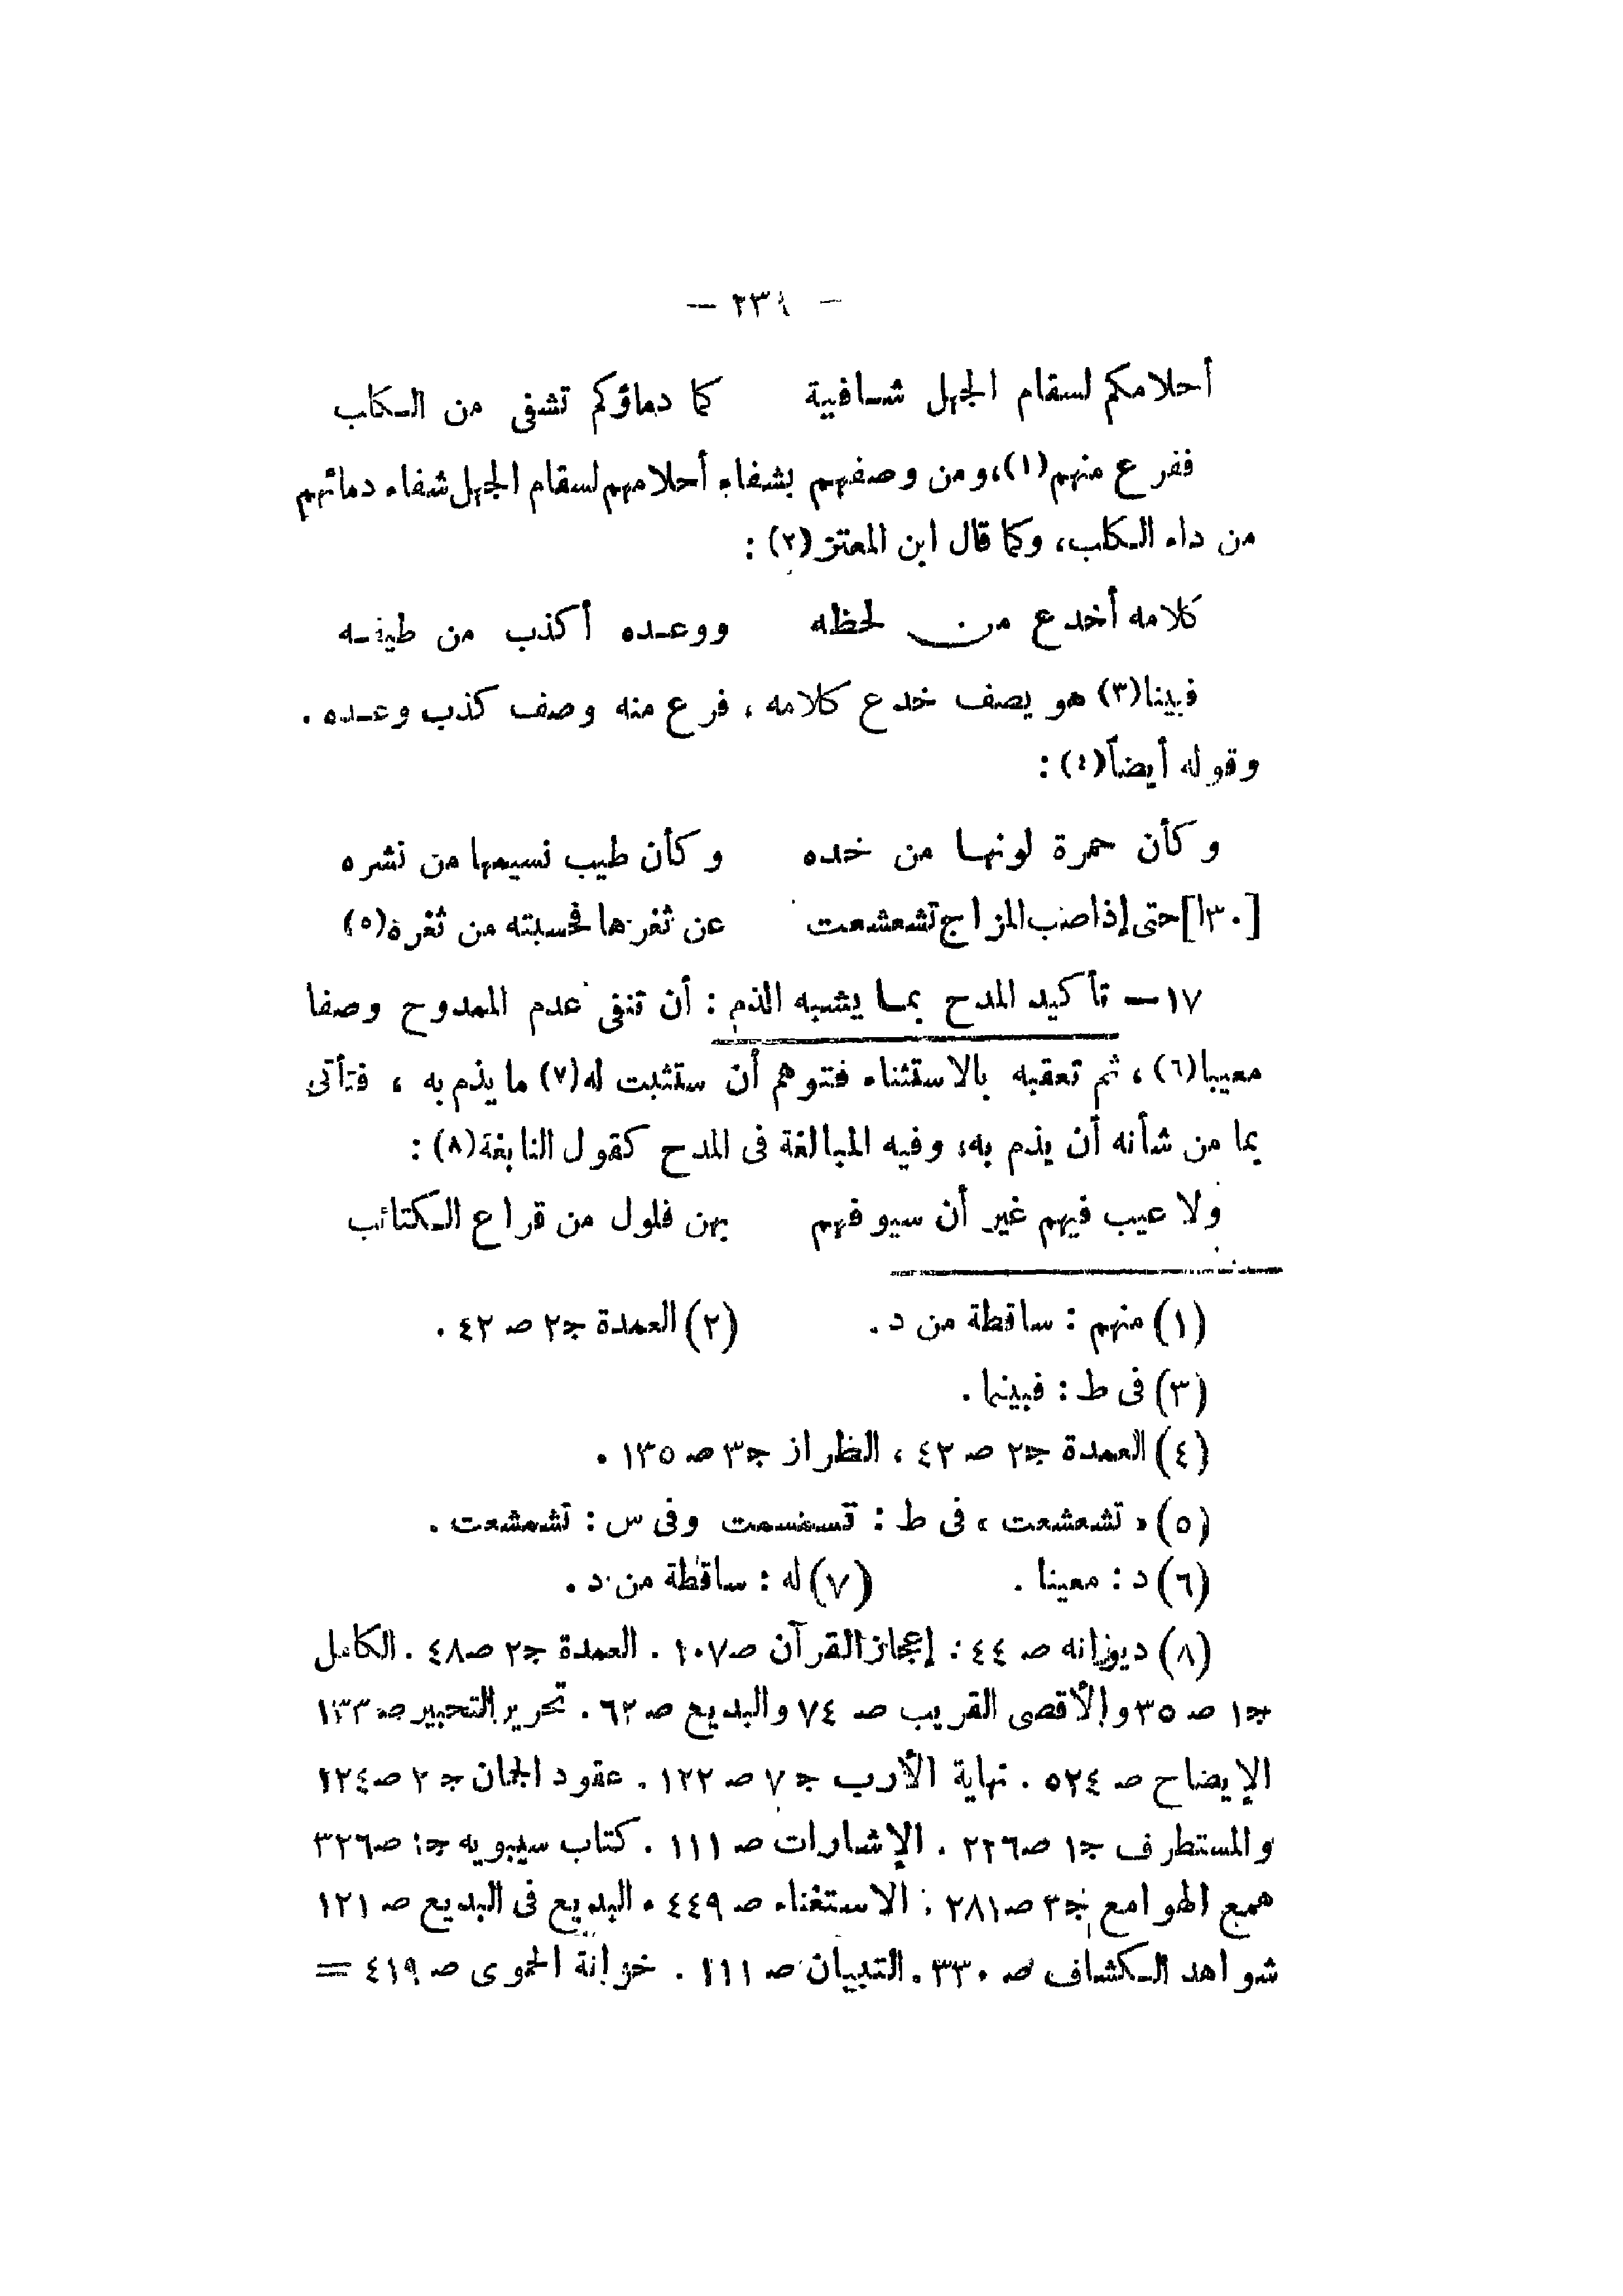 — ٢٣٩ —
أحلامكم لسقام الجهل شافية كما دماؤكم تشفى من الكلب
ففرع منهم(١)،ومن وصفهم بشفاء أحلامهم لسقام الجهل شفاء دمائهم
من داء الكلب، وكما قال ابن المعتز(٢) :
كلامه أخدع من لحظه ووعده أكذب من طيفه
فبينا(٣) هو يصف خدع كلامه ، فرع منه وصف كذب وعده .
وقوله أيضاً(٤) :
وكأن حمرة لونها من خده وكأن طيب نسيمها من نشره
[١٣٠]حتى إذا صب المزاج تشعشعت عن ثغرها فحسبته من ثغره(٥)
١٧— تأكيد المدح بما يشبه الذم : أن تنفى عدم الممدوح وصفا
معيبا(٦) ، ثم تعقبه بالاستثناء فتوهم أن ستثبت له(٧) ما يذم به ، فتأتى
بما من شأنه أن يذم به، وفيه المبالغة فى المدح كقول النابغة(٨) :
ولا عيب فيهم غير أن سيوفهم بهن فلول من قراع الكتائب
(١) منهم : ساقطة من د. (٢) العمدة ج٢ ص ٤٢ .
(٣) فى ط : فبينما .
(٤) العمدة ج٢ ص ٤٢ ، الطراز ج٣ ص ١٣٥ .
(٥) « تشعشعت » فى ط : وفى س : تشمشعت .
(٦) د : معينا . (٧) له : ساقطة من د .
(٨) ديوانه ص ٤٤ . إعجاز القرآن ص١٠٧ . العمدة ج٢ ص٤٨ . الكامل
ج١ ص ٣٥ والأقصى القريب ص ٧٤ والبديع ص ٦٢ . تحرير التحبير ص ١٣٣
الإيضاح ص ٥٢٤ . نهاية الأرب ج ٧ ص ١٢٢ . عقود الجمان ج ٢ ص ١٢٤
والمستطرف ج١ ص٢٢٦ . الإشارات ص ١١١ . كتاب سيبويه ج١ ص٣٢٦
همع الهوامع ج٣ ص٢٨١ . الاستغناء ص ٤٤٩ . البديع فى البديع ص ١٢١
شواهد الكشاف ص ٣٣٠ . التبيان ص ١١١ . خزانة الحموى ص ٤١٩ =